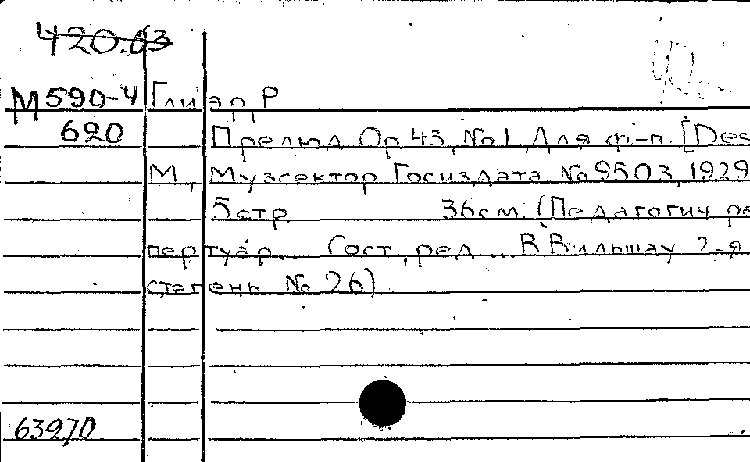 420.63
М590-4 Глиэр, Р
620 Прелюд. Ор. 43, №1. Для ф-п. [Des
М., Музсектор Госиздата № 9503, 1929
5 стр. 36 см. (Педагогич. ре
пертуар. Гост. ред. ... В. Вильшау 2-я
степень № 26).
63970